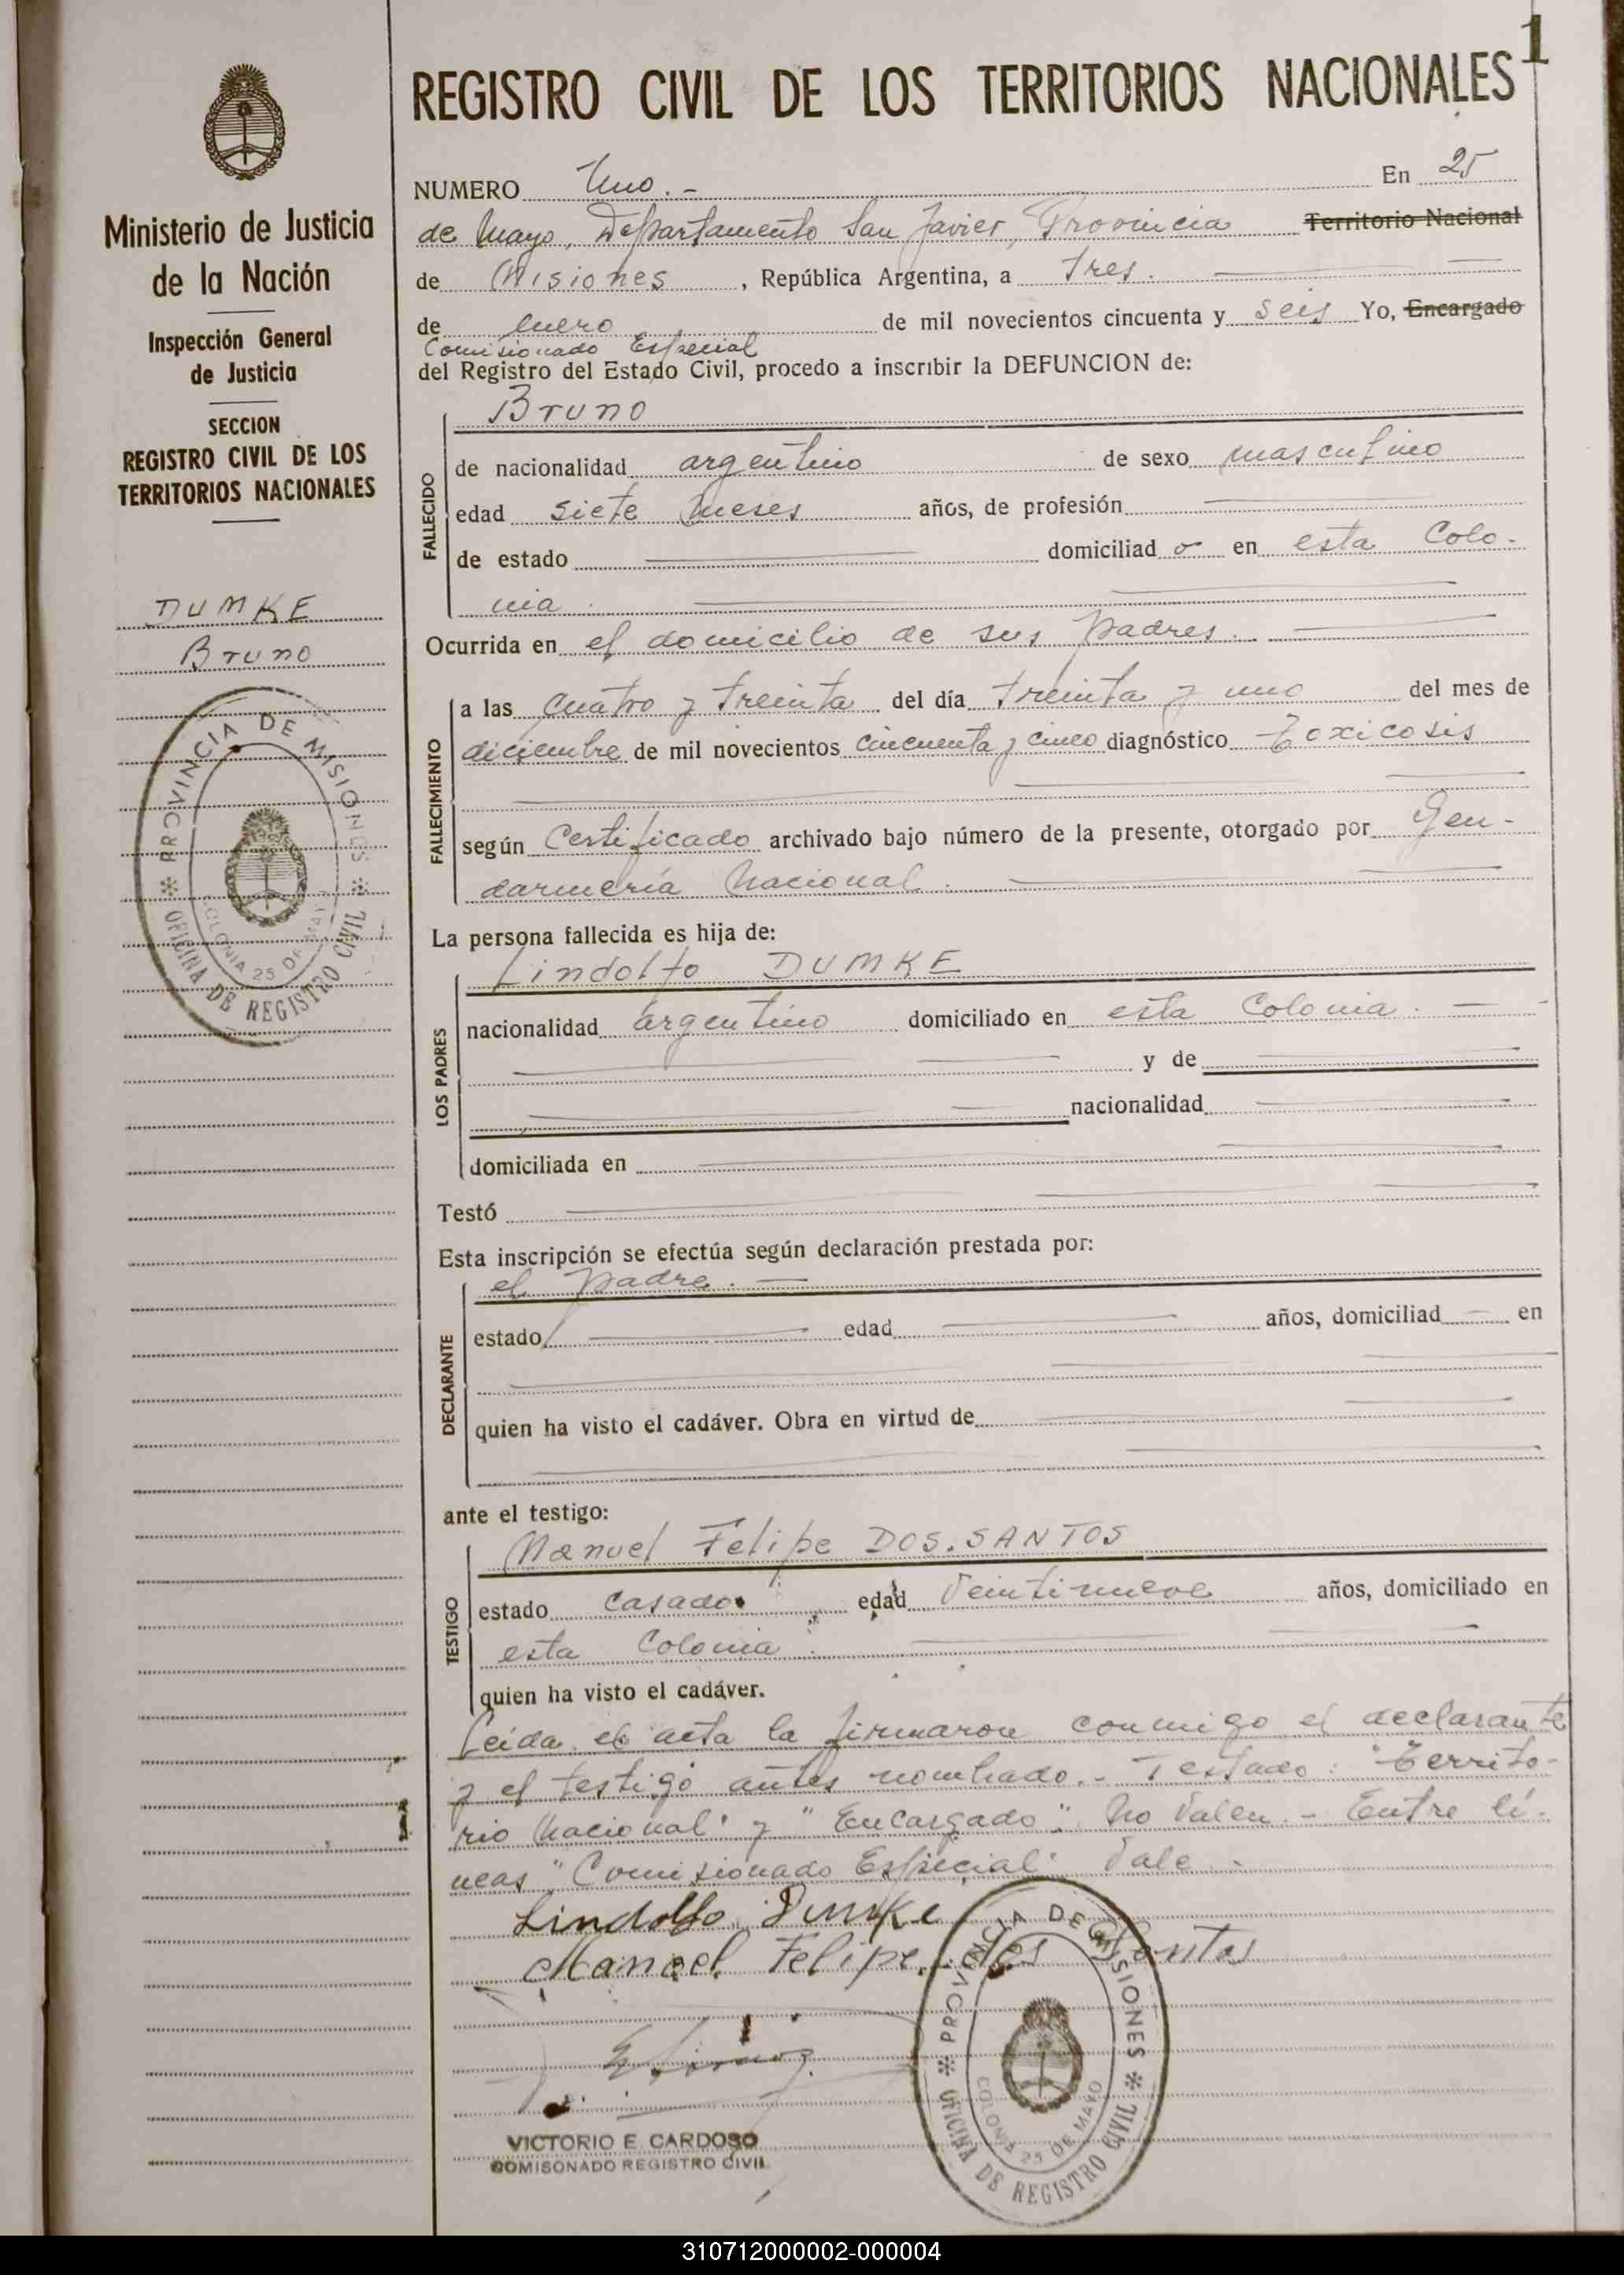 1
REGISTRO CIVIL DE LOS TERRITORIOS NACIONALES
Ministerio de Justicia
de la Nación
Inspección General
de Justicia
SECCION
REGISTRO CIVIL DE LOS
TERRITORIOS NACIONALES
DUMKE
Bruno
PROVINCIA DE MISIONES
COLONIA 25 DE MAYO
OFICINA DE REGISTRO CIVIL
NUMERO Uno.- En 25
de Mayo, Departamento San Javier, Provincia Territorio Nacional
de Misiones, República Argentina, a tres.
de Enero de mil novecientos cincuenta y seis Yo, Encargado
Comisionado Especial
del Registro del Estado Civil, procedo a inscribir la DEFUNCION de:
FALLECIDO
Bruno
de nacionalidad argentino de sexo masculino
edad siete meses años, de profesión
de estado domiciliad o en esta Colo-
nia.
Ocurrida en el domicilio de sus padres.
FALLECIMIENTO
a las cuatro y treinta del día treinta y uno del mes de
diciembre de mil novecientos cincuenta y cinco diagnóstico Toxicosis
según Certificado archivado bajo número de la presente, otorgado por Gen-
darmería Nacional.
La persona fallecida es hija de:
LOS PADRES
Lindolfo DUMKE
nacionalidad argentino domiciliado en esta Colonia.
y de
nacionalidad
domiciliada en
Testó
Esta inscripción se efectúa según declaración prestada por:
DECLARANTE
el padre.
estado edad años, domiciliad en
quien ha visto el cadáver. Obra en virtud de
ante el testigo:
TESTIGO
Manuel Felipe DOS.SANTOS
estado casado edad Veintinueve años, domiciliado en
esta Colonia.
quien ha visto el cadáver.
Leida el acta la firmaron conmigo el declarante
y el testigo antes nombrado.- Testado: "Territo-
rio Nacional" y "Encargado": No Valen.- Entre lí-
neas "Comisionado Especial" Vale.-
Lindolfo Dumke
Manoel Felipe dos Santos
VICTORIO E. CARDOSO
COMISONADO REGISTRO CIVIL
PROVINCIA DE MISIONES
COLONIA 25 DE MAYO
OFICINA DE REGISTRO CIVIL
310712000002-000004